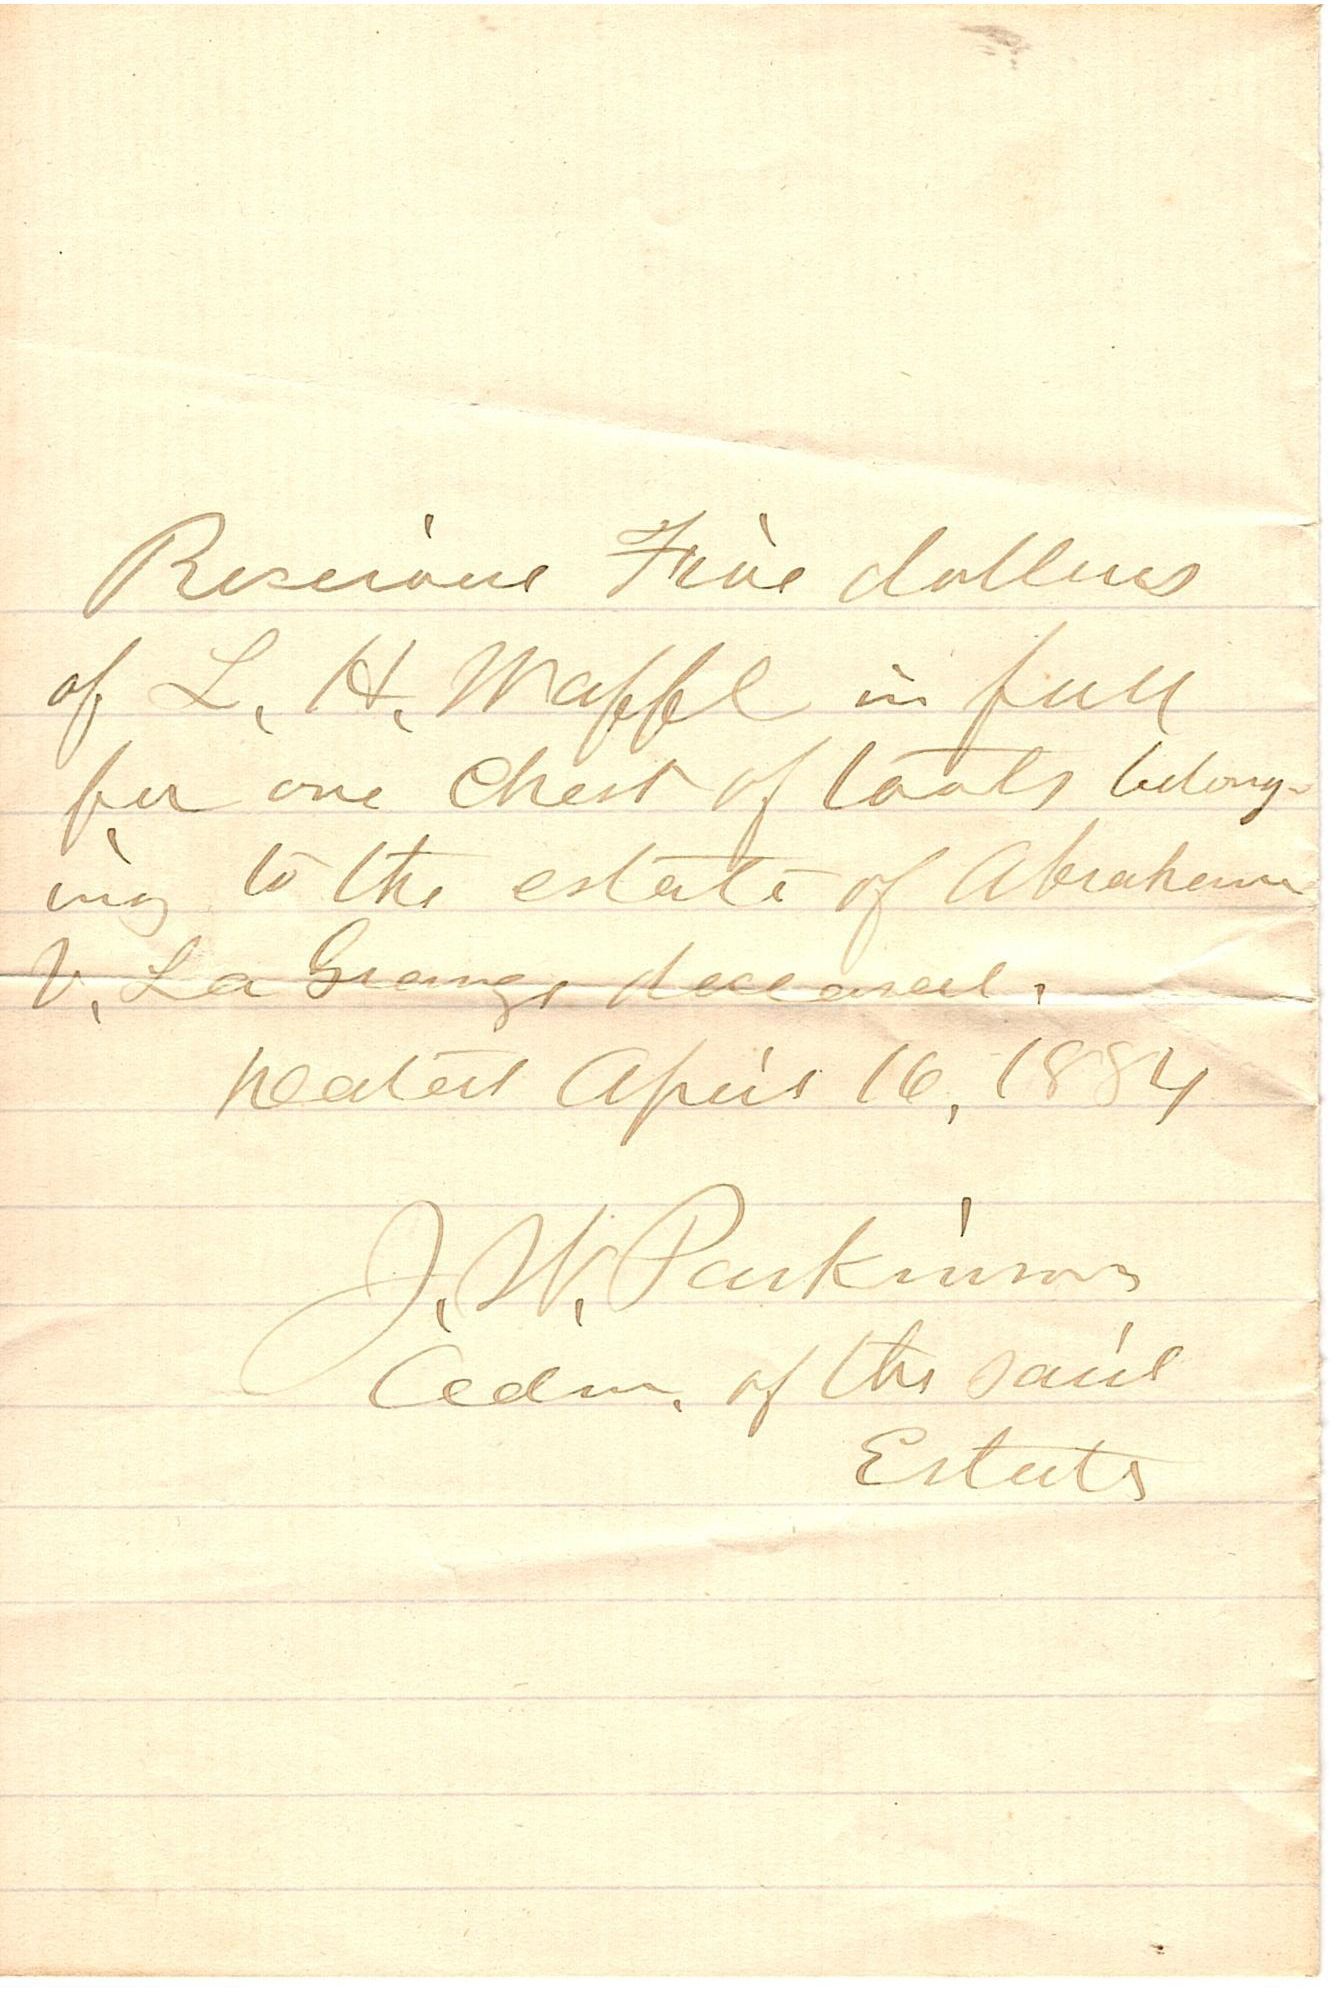 Received Five dollars
of L. H. Waffle in full
for one chest of tools belong-
ing to the estate of Abraham
V. La Grange deceased.
Dated April 16, 1884
J. W. Parkinson
Adm. of the said
Estate